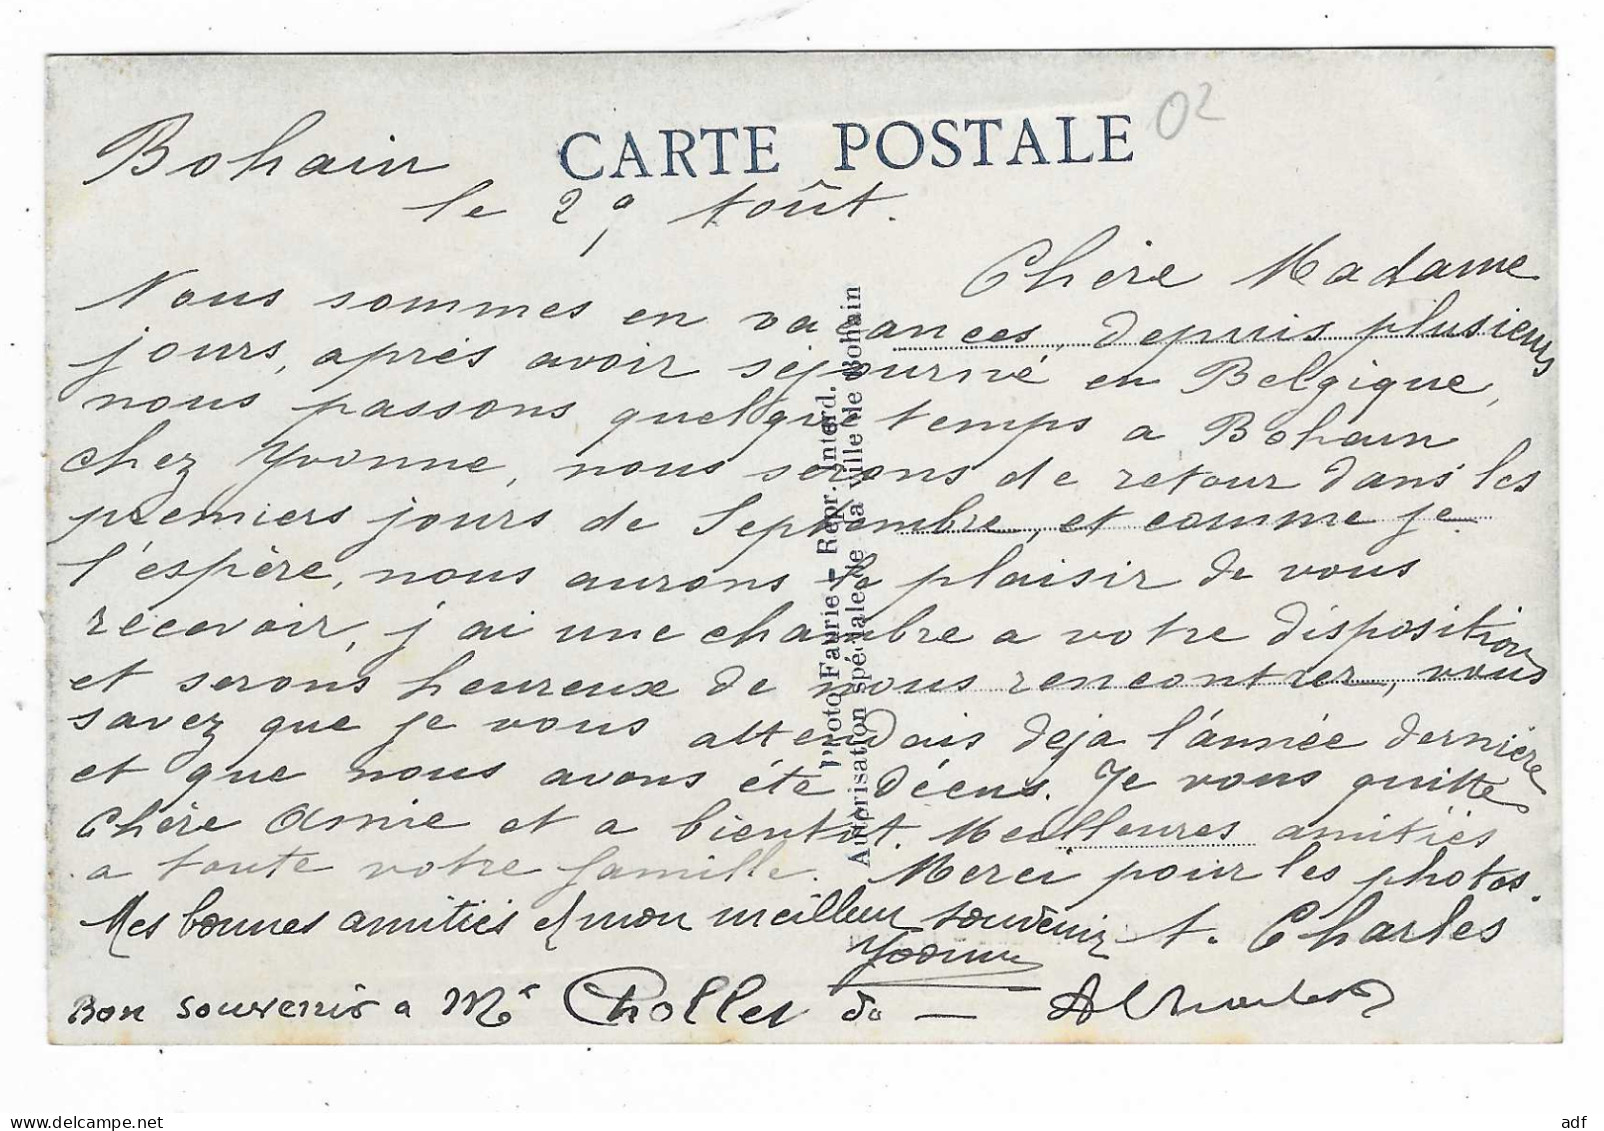 CARTE POSTALE
02
Bohain
le 29 Août.
Chère Madame
Nous sommes en vacances, depuis plusieurs
jours, après avoir séjourné en Belgique,
nous passons quelque temps a Bohain
chez Yvonne, nous serons de retour dans les
premiers jours de Septembre, et comme je
l'espère, nous aurons le plaisir de vous
recevoir, j'ai une chambre a votre disposition
et serons heureux de nous rencontrer, vous
savez que je vous attendais deja l'année dernière
et que nous avons été déçus. Je vous quitte
Chère Amie et a bientot. Meilleures amitiés
a toute votre famille. Merci pour les photos.
Mes bonnes amitiés et mon meilleur souvenir
Yvonne
A. Charles
Bon souvenir a Mr Chollet do —
Photo Faurie - Repr. interd.
Autorisation spéciale de la ville de Bohain
www.delcampe.net
adf